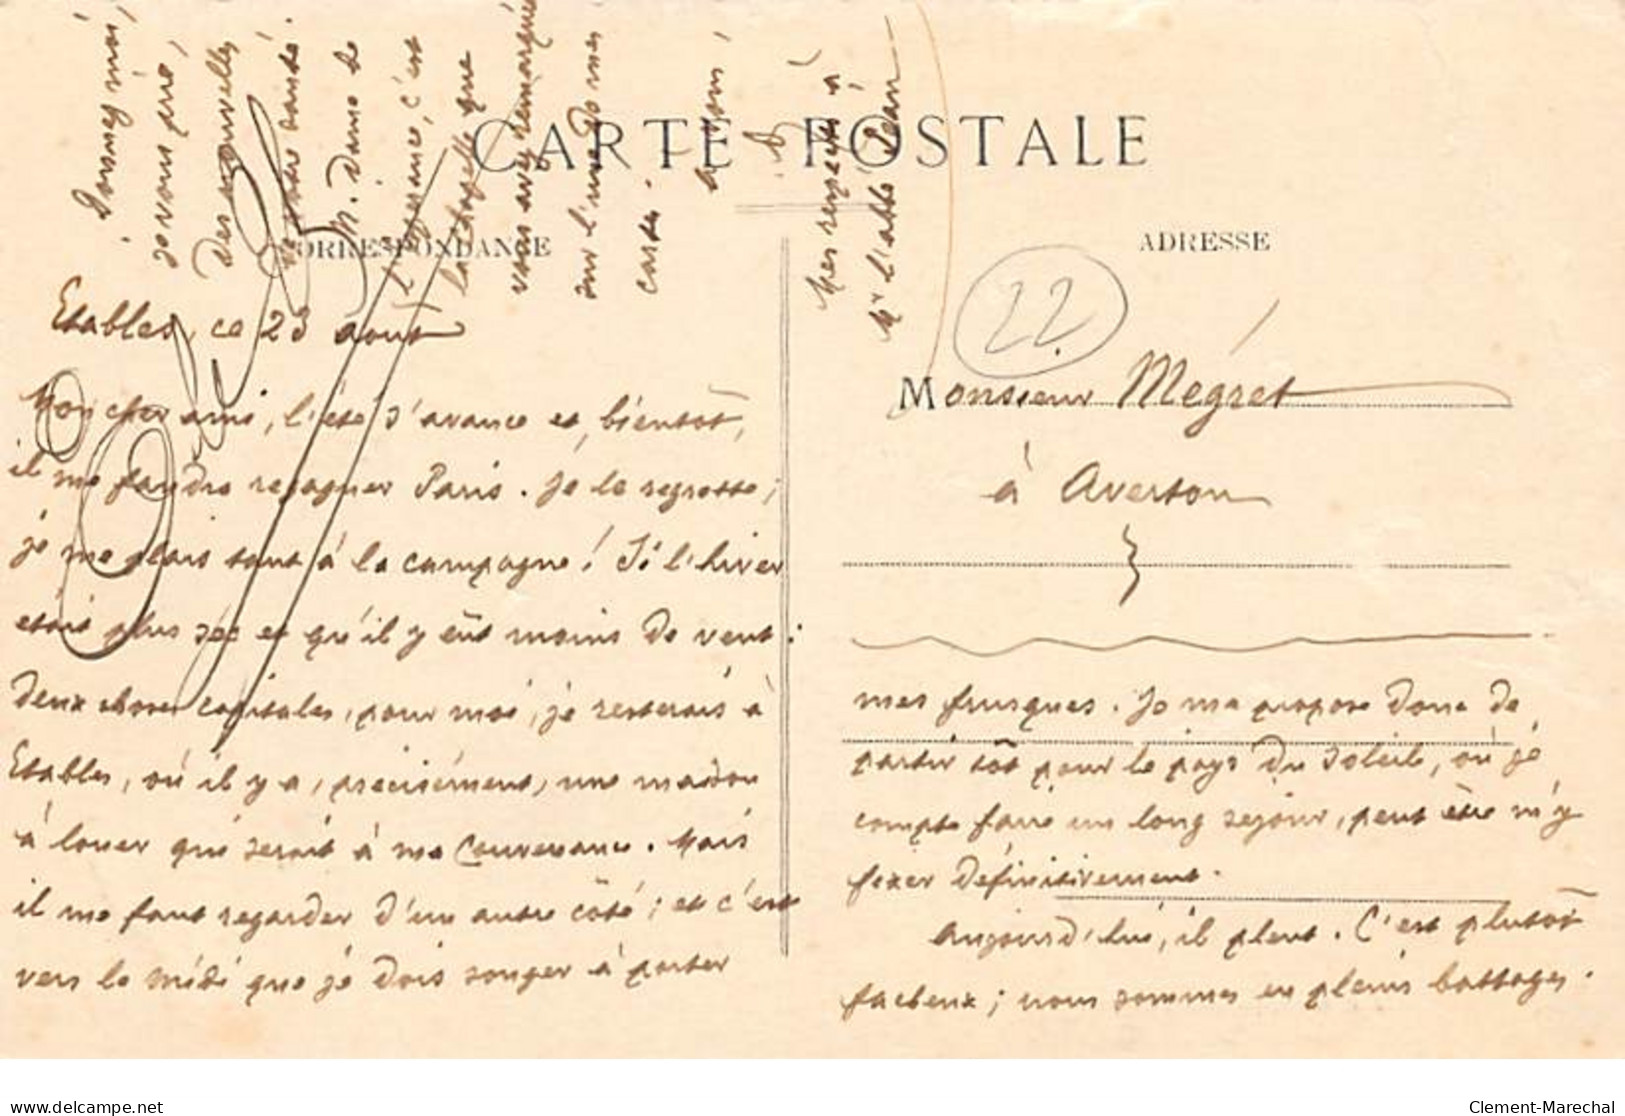 CARTE POSTALE
CORRESPONDANCE
ADRESSE
22
Etables, ce 23 août
Mon cher ami, l'été s'avance et, bientôt,
il me faudra regagner Paris. Je le regrette;
je me plais tant à la campagne! Si l'hiver
était plus sec et qu'il y eût moins de vent:
deux choses capitales, pour moi, je resterais à
Etables, où il y a, précisément, une maison
à louer qui serait à ma convenance. Mais
il me faut regarder d'un autre côté; et c'est
vers le midi que je dois songer à porter
Monsieur Mégret
à Averton
mes frusques. Je me propose donc de
partir tôt pour le pays du soleil, où je
compte faire un long séjour, peut être m'y
fixer définitivement.
Aujourd'hui, il pleut. C'est plutôt
facheux; nous sommes en pleins battages.
Donnez moi,
je vous prie,
des nouvelles
de votre santé.
N. Dame de
l'Espérance, c'est
la chapelle que
vous avez remarquée
sur l'une de mes
cartes.
A vous,
Mes respects à
Mr l'abbé Jean
delcampe.net
Clement-Marechal